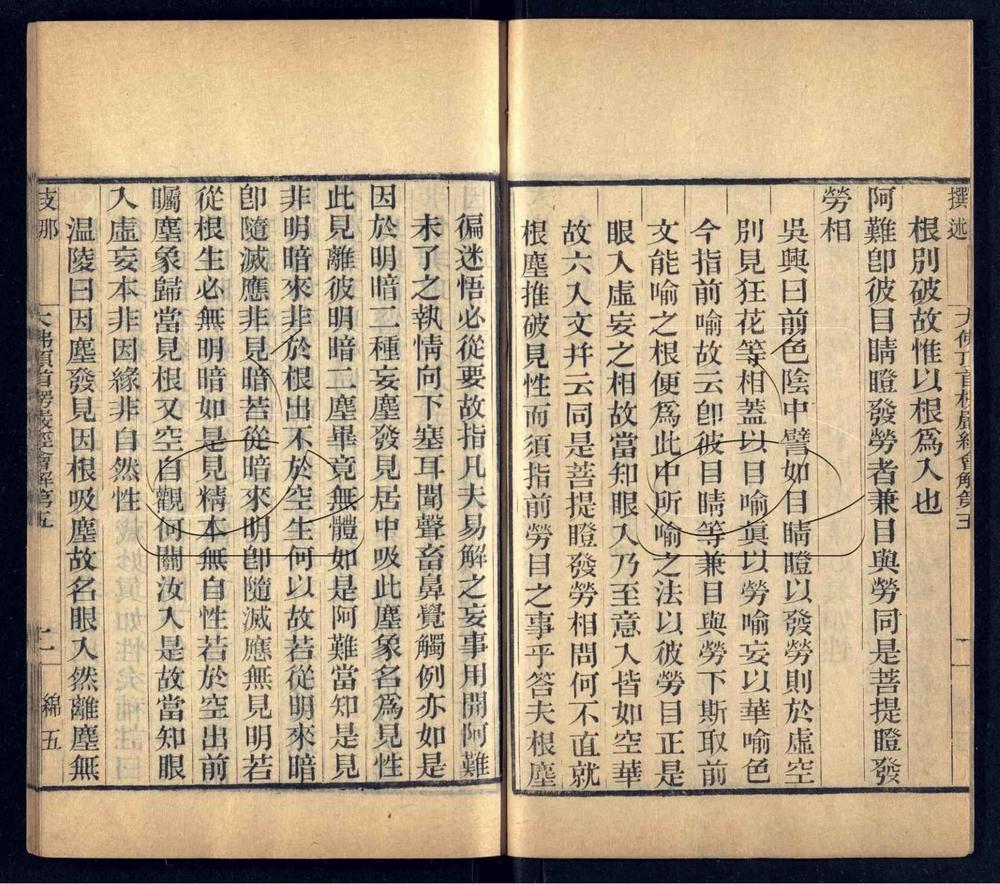 撰述
大佛頂首楞嚴經會解第五
根別破故惟以根爲入也
阿難卽彼目睛瞪發勞者兼目與勞同是菩提瞪發
勞相
吳興曰前色陰中譬如目睛瞪以發勞則於虛空
別見狂花等相蓋以目喻眞以勞喻妄以華喻色
今指前喻故云卽彼目睛等兼目與勞下斯取前
文能喻之根便爲此中所喻之法以彼勞目正是
眼入虛妄之相故當知眼入乃至意入皆如空華
故六入文幷云同是菩提瞪發勞相問何不直就
根塵推破見性而須指前勞目之事乎答夫根塵
徧迷悟必從要故指凡夫易解之妄事用開阿難
未了之執情向下塞耳聞聲畜鼻覺觸例亦如是
因於明暗二種妄塵發見居中吸此塵象名爲見性
此見離彼明暗二塵畢竟無體如是阿難當知是見
非明暗來非於根出不於空生何以故若從明來暗
卽隨滅應非見暗若從暗來明卽隨滅應無見明若
從根生必無明暗如是見精本無自性若於空出前
矚塵象歸當見根又空自觀何關汝入是故當知眼
入虛妄本非因緣非自然性
温陵曰因塵發見因根吸塵故名眼入然離塵無
支那
大佛頂首楞嚴經會解第五
綿五